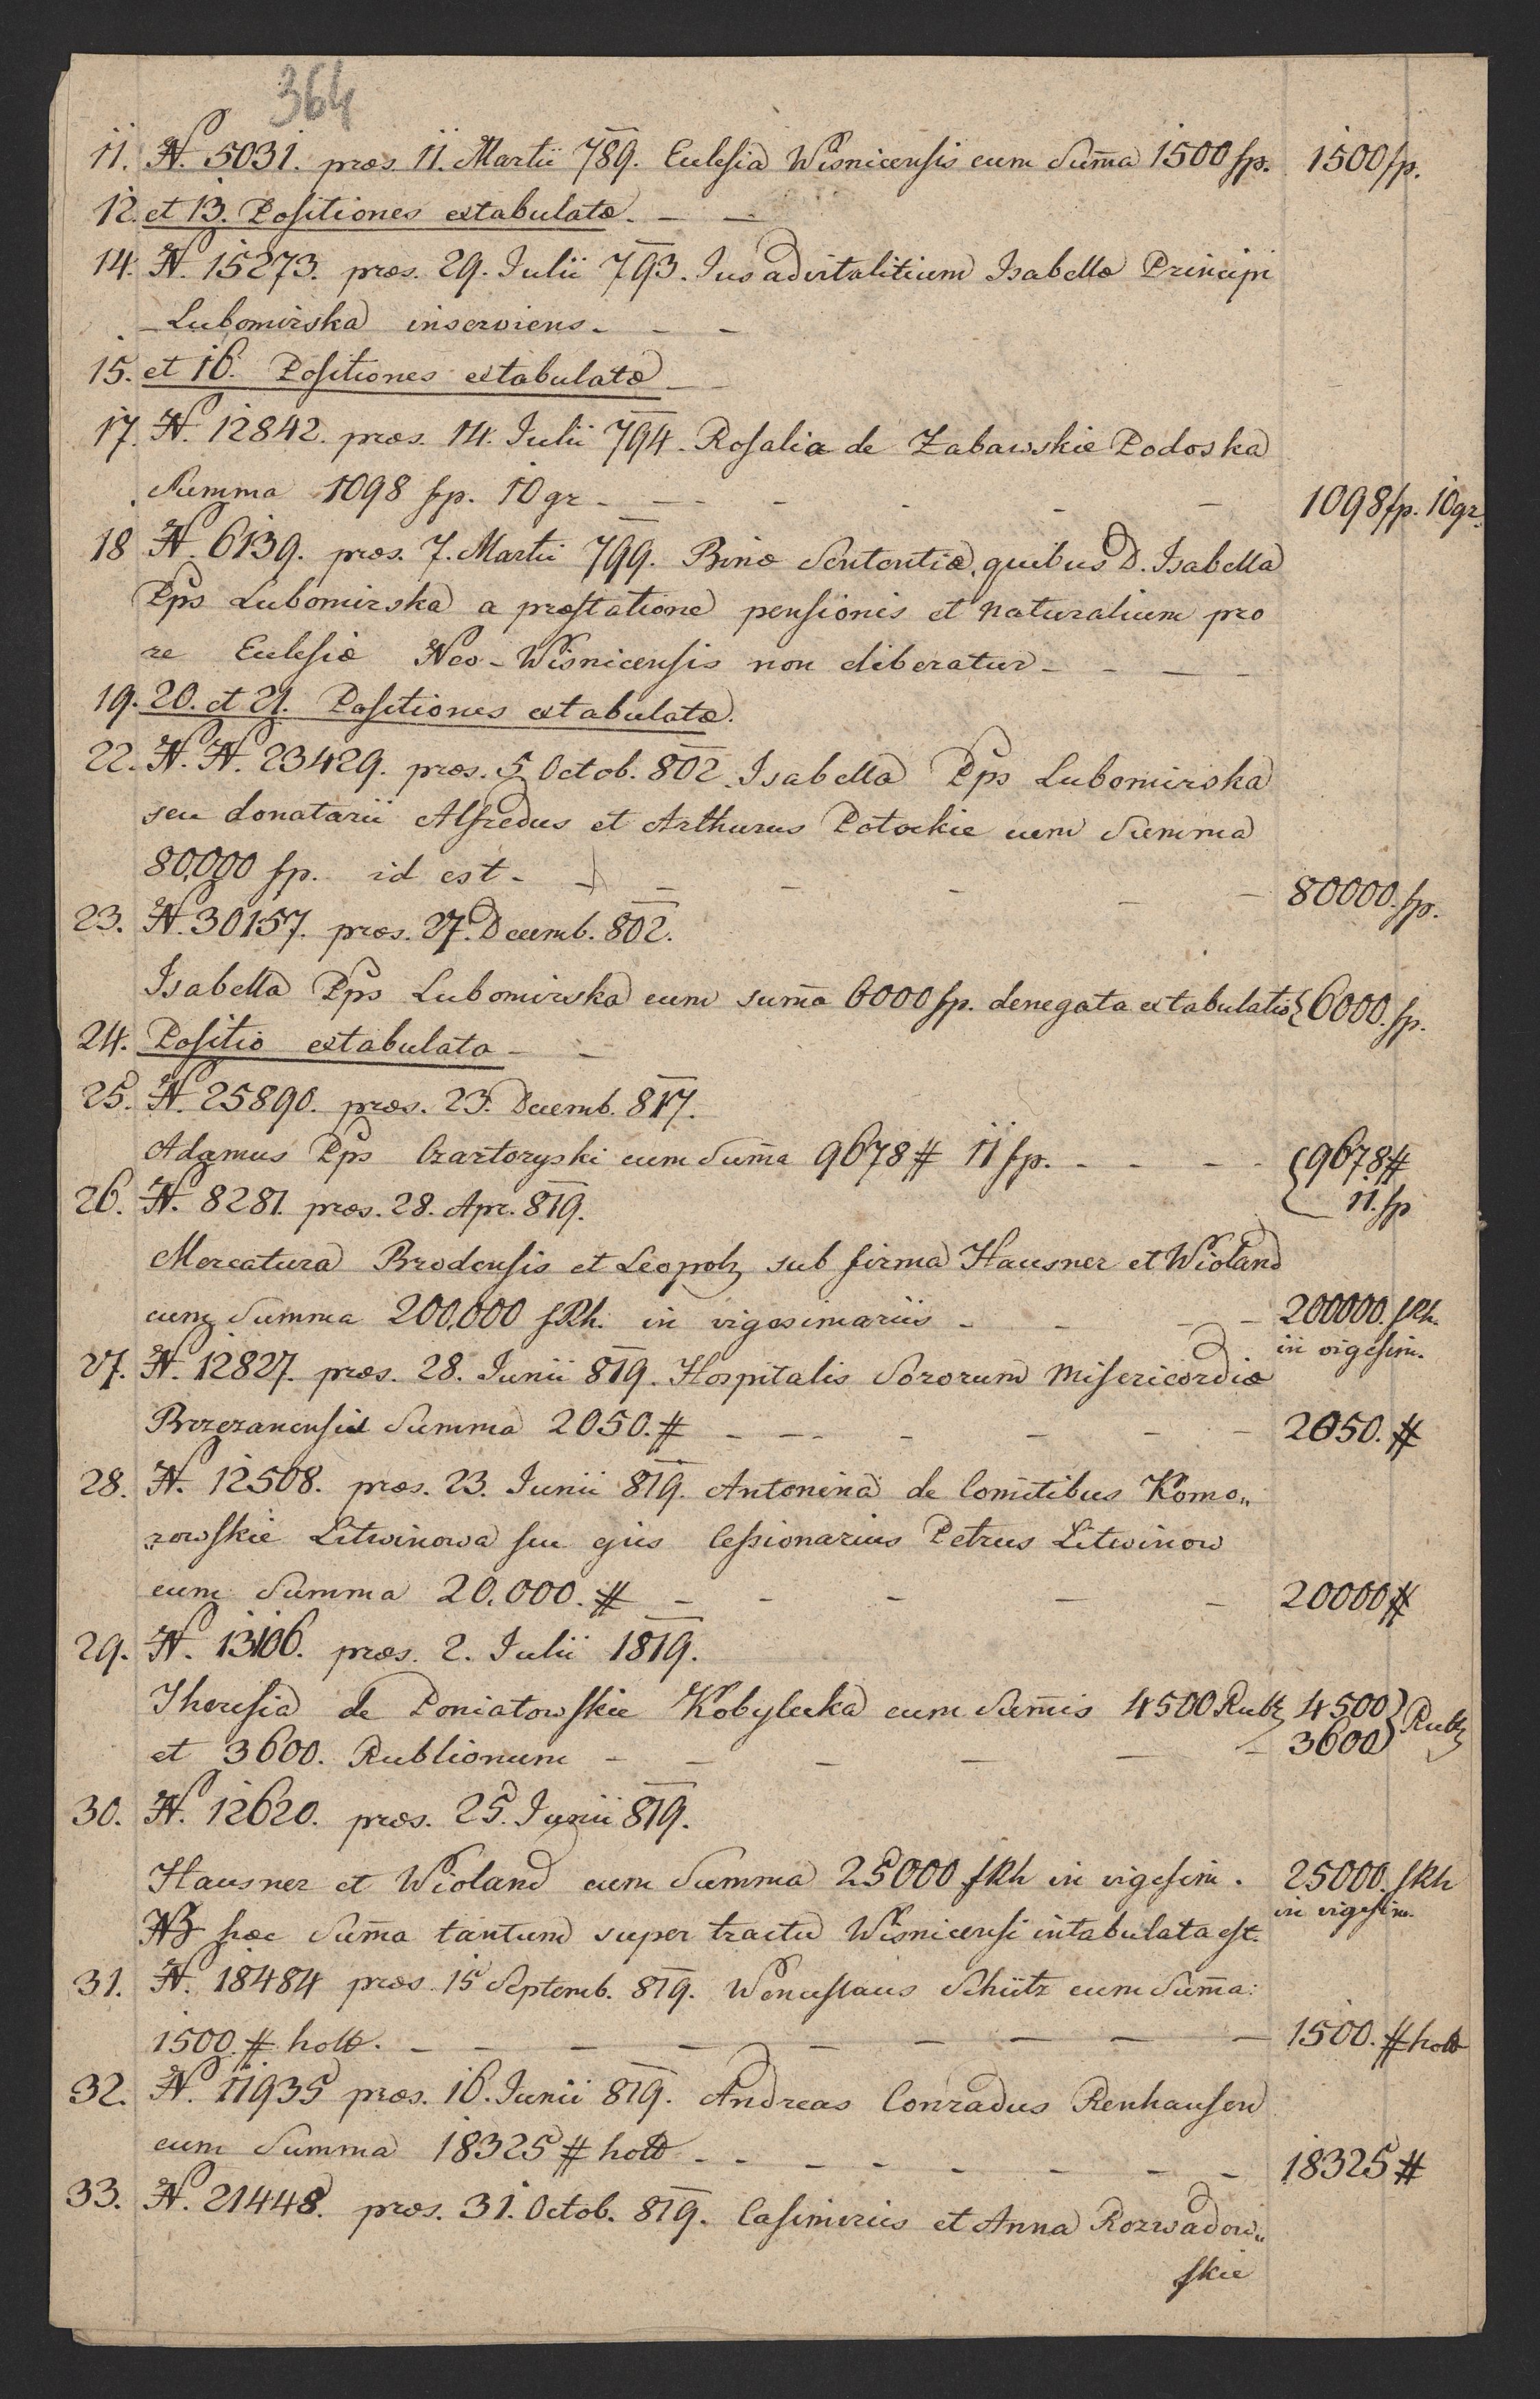 364
11. N. 5031. præs. 11. Martii 789. Eclesia Wisnicensis cum Sum̄a 1500 fp. 1500 fp.
12. et 13. Positiones extabulatæ. — —
14. N. 15273. præs. 29. Julii 793. Jus advitalitium Isabellæ Principi
Lubomirska inserviens. — —
15. et 16. Positiones extabulatæ — —
17. N. 12842. præs. 14. Julii 794. Rosalia de Zabawskie Podoska
Summa 1098 fp. 10 gr — — — — — 1098 fp. 10 gr.
18 N. 6139. præs. 7. Martii 799. Binæ Sententiæ, quibus D. Isabella
Pps Lubomirska a præstatione pensionis et naturalium pro
re Eclesiæ Neo-Wisnicensis non liberatur — — — —
19. 20. et 21. Positiones extabulatæ.
22. N. N. 23429. præs. 5 Octob. 802. Isabella Pps Lubomirska
seu donatarii Alfredus et Arthurus Potockie cum Summa
80,000 fp. id est — — — — — 80000. fp.
23. N. 30157. præs. 27. Decemb. 802.
Isabella Pps Lubomirska cum sum̄a 6000 fp. denegata extabulatio { 6000. fp.
24. Positio extabulata — —
25. N. 25890. præs. 23. Decemb. 817.
Adamus Pps Czartoryski cum Sum̄a 9678 # 11 fp. — — — { 9678 #
11. fp
26. N. 8281. præs. 28. Apr. 819.
Mercatura Brodensis et Leopol sub firma Hausner et Violand
cum Summa 200,000 fRh. in vigesimariis — — — 200000. fRh.
in vigesim.
27. N. 12827. præs. 28. Junii 819. Hospitalis Sororum Misericordiæ
Brzezanensis Summa 2050. # — — — — — 2050. #
28. N. 12508. præs. 23. Junii 819. Antonina de Comitibus Komo„
„rowskie Litwinowa seu ejus Cessionarius Petrus Litwinow
cum Summa 20.000. # — — — — — 20000 #
29. N. 13106. præs. 2. Julii 1819.
Theresia de Poniatowskie Kobylecka cum Sum̄is 4500 Rubl 4500 } Rubl
et 3600. Rublionum — — — — — 3600
30. N. 12620. præs. 25. Junii 819.
Hausner et Violand cum Summa 25000 fRh in vigesim. 25000. fRh
in vigesim.
NB hæc Sum̄a tantum super tractu Wisnicensi intabulata est.
31. N. 18484 præs. 15 Septemb. 819. Wenceslaus Schütz cum Sum̄a:
1500. # holl. — — — — — — — 1500. # holl
32. N. 11935 præs. 16. Junii 819. Andreas Conradus Renhausen
cum Summa 18325 # holl — — — — — — 18325 #
33. N. 21448. præs. 31. Octob. 819. Casimirus et Anna Rozwadow„
skie